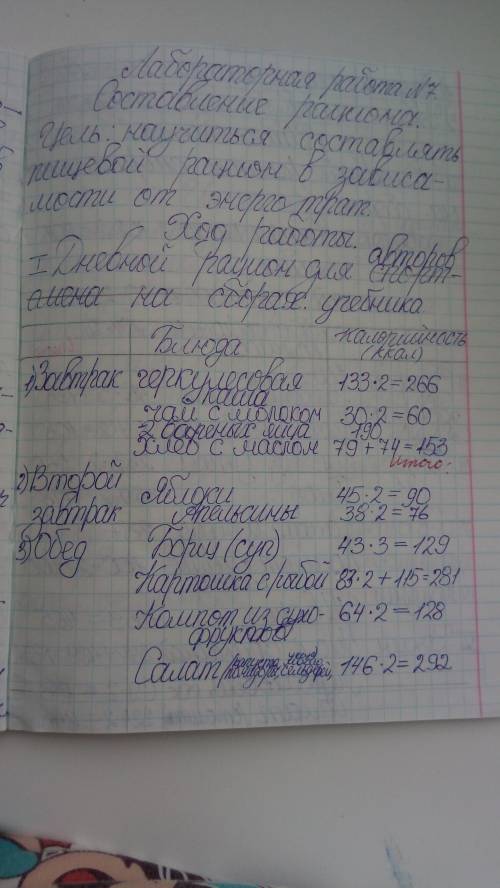 Лабораторная работа №7.
Составление рациона.
Цель: научиться составлять
пищевой рацион в зависи-
мости от энерготрат.
Ход работы.
авторов
I Дневной рацион для спорт-
смена на сборах. учебника
Блюда Калорийность
(ккал)
1) Завтрак геркулесовая 133·2=266
каша
чай с молоком 30·2=60
2 вареных яйца 190
хлеб с маслом 79+74=153
Итого:
2) Второй Яблоки 45·2=90
завтрак Апельсины 38·2=76
3) Обед Борщ (суп) 43·3=129
Картошка с рыбой 83·2+115=281
Компот из сухо- 64·2=128
фруктов
Салат 146·2=292